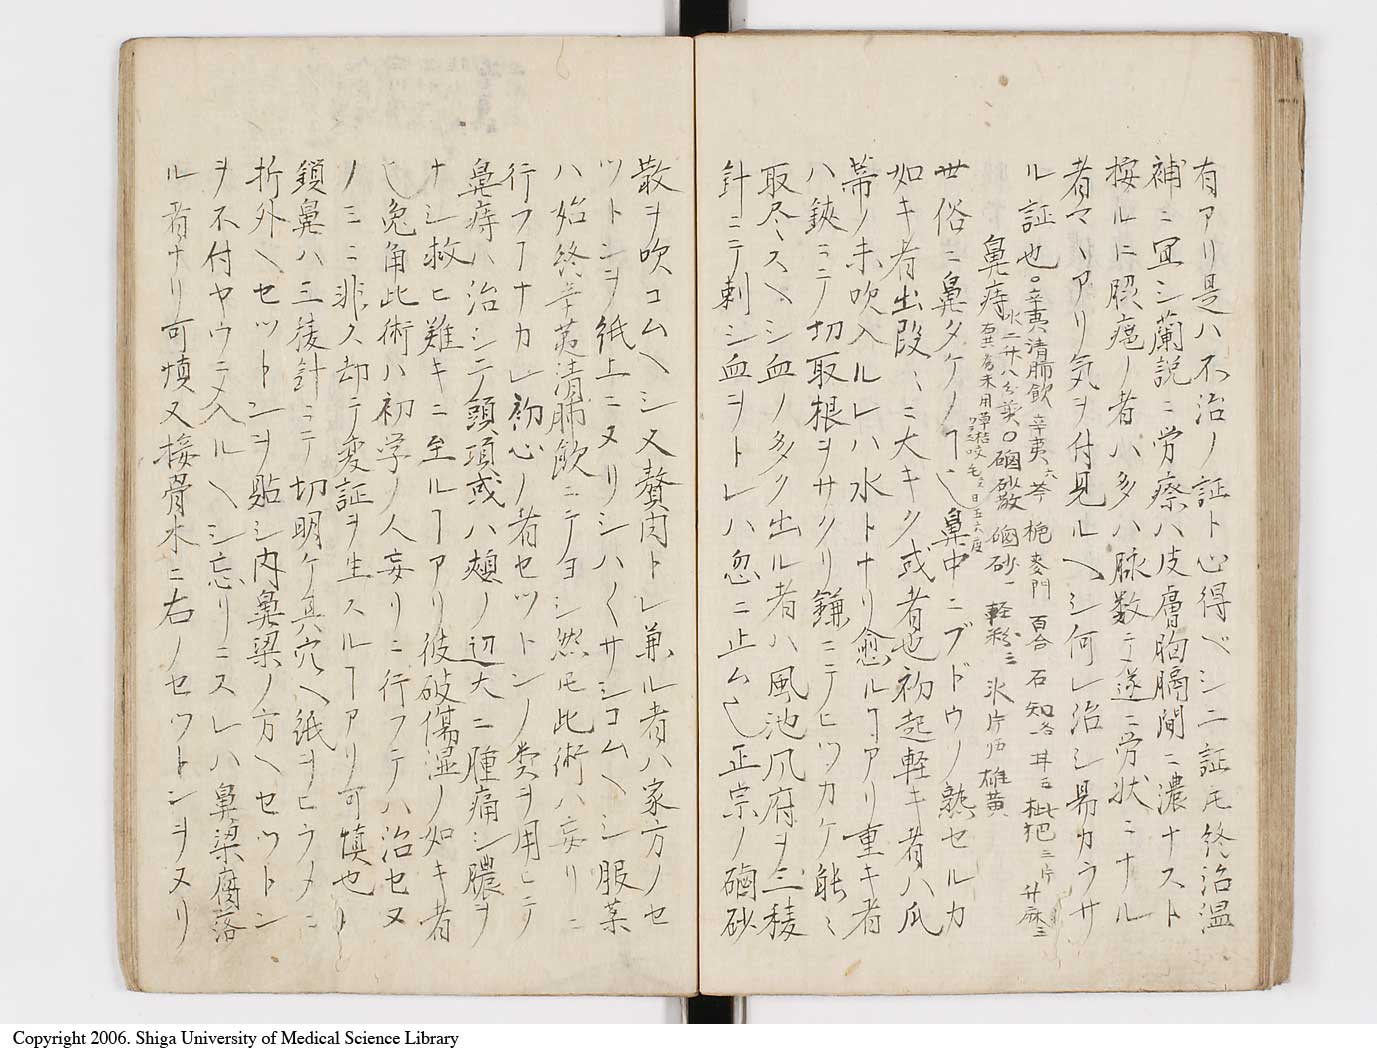 有アリ是ハ不治ノ証ト心得ベシ二証モ終治温
補ニ宜シ蘭説ニ労瘵ハ皮膚胸膈間ニ濃ナスト
按ルニ ノ者ハ多ハ脉数ニテ遂ニ労状ニナル
者マヽアリ気ヲ付見ルヘシ何レ治シ易カラサ
ル証也○辛夷清肺飲 辛夷六 芩 梔 麦門 百合 石 知各 枇杷三片 升麻三
水二 八分煎○硇砂散 硇砂一 軽粉三 氷片 雄黄
鼻痔
右共為末用草梏咬毛 日五六度
世俗ニ鼻タケノヿ 鼻中ニブドウノ熟セルカ
如キ者出段〻ニ大キク或者也初起軽キ者ハ瓜
蒂ノ末吹入ルレハ水トナリ愈ルヿアリ重キ者
ハ鋏ニテ切取根ヲサクリ鎌ニテヒツカケ能〻
取尽スヘシ血ノ多ク出ル者ハ風池風府ヲ三稜
針ニテ刺シ血ヲトレハ忽ニ止ム 正宗ノ硇砂
散ヲ吹コムヘシ又贅肉トレ兼ル者ハ家方ノセ
ツトンヲ紙上ニヌリシハ〱サシコムヘシ服薬
ハ始終辛夷清肺飲ニテヨシ然 此術ハ妄リニ
行フヿナカレ初心ノ者セツトンノ類ヲ用ヒテ
鼻痔ハ治シテ頭項或ハ ノ辺大ニ腫痛シ膿ヲ
ナシ救ヒ難キニ至ルヿアリ彼破傷湿ノ如キ者
兔角此術ハ初学ノ人妄リニ行フテハ治セヌ
ノミニ非ス却テ変証ヲ生スルヿアリ可慎也
鎖鼻ハ三稜針ニテ切明ケ其穴ヘ紙ヲヒラメニ
折外ヘセツトンヲ貼シ内鼻梁ノ方ヘセツトン
ヲ不付ヤウニ入ルヘシ忘リニスレハ鼻梁腐落
ル者ナリ可慎又接骨木ニ右ノセツトンヲヌリ